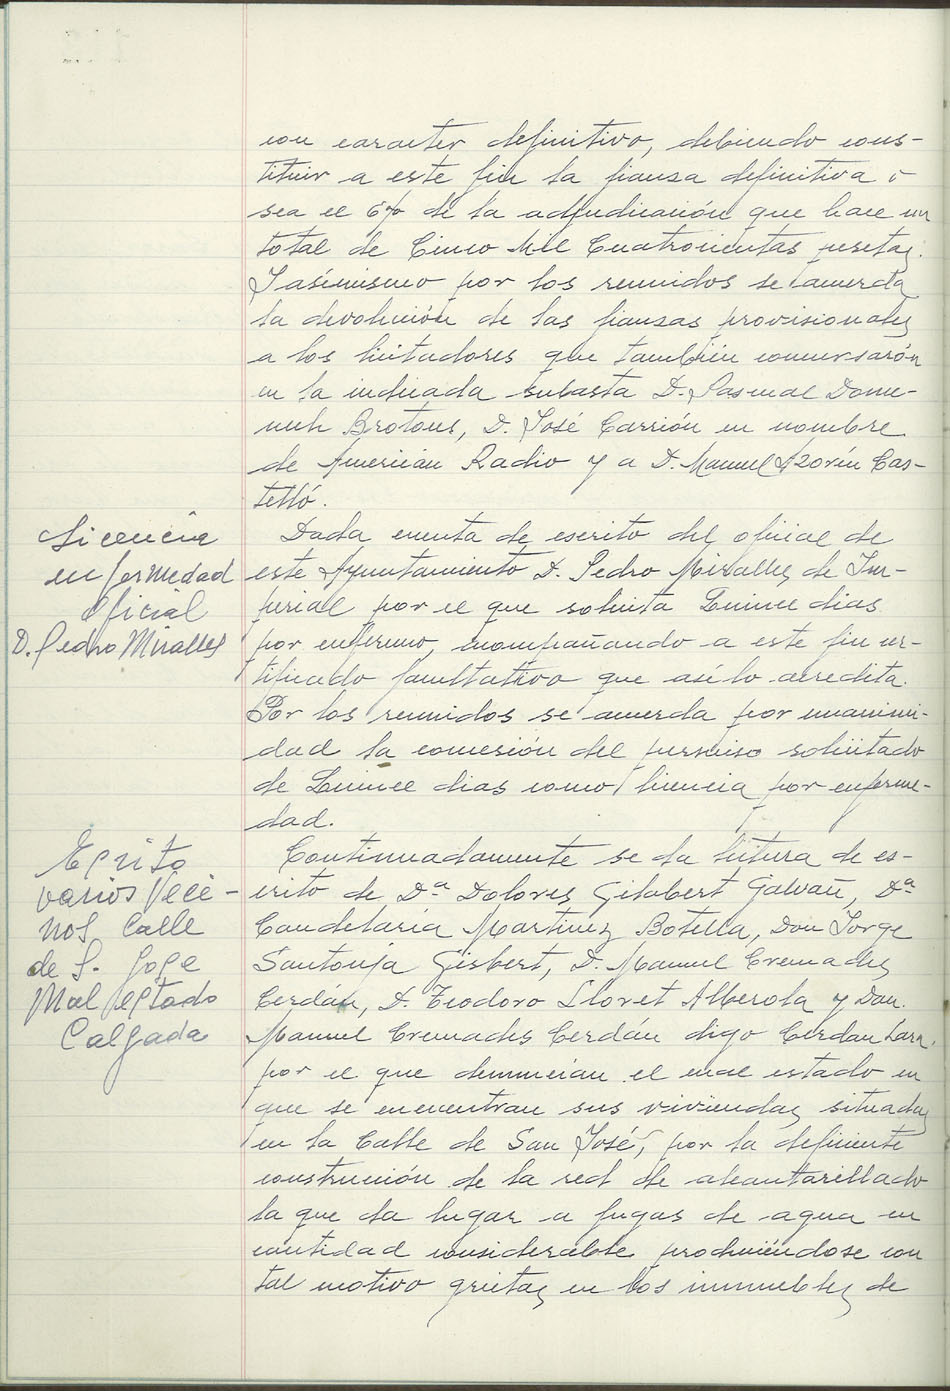 con caracter definitivo, debiendo cons-
tituir a este fin la fianza definitiva ó
sea el 6% de la adjudicación que hace un
total de Cinco Mil Cuatrocientas pesetas.
Y asimismo por los reunidos se acuerda
la devolución de las fianzas provisionales
a los licitadores que también concursarón
en la indicada subasta D. Pascual Dome-
nech Brotons, D. José Carrión en nombre
de American Radio y a D. Manuel Azorín Cas-
telló.
Licencia
enfermedad
Oficial
D. Pedro Miralles
Dada cuenta de escrito del oficial de
este Ayuntamiento D. Pedro Miralles de Im-
perial por el que solicita Quince dias
por enfermo, acompañando a este fin cer-
tificado facultativo que asi lo acredita.
Por los reunidos se acuerda por unanimi-
dad la concesión del permiso solicitado
de Quince dias como licencia por enferme-
dad.
Escrito
varios Veci-
nos Calle
de S. Jose
Mal estado
Calzada
Continuadamente se da lectura de es-
crito de Dª Dolores Gilabert Galvañ, Dª
Candelaria Martinez Botella, Don Jorge
Santonja Gisbert, D. Manuel Cremades
Cerdán, D. Teodoro Lloret Alberola y Don
Manuel Cremades Cerdán digo Cerdan Lara,
por el que denuncian el mal estado en
que se encuentran sus viviendas situadas
en la Calle de San José, por la deficiente
construcción de la red de alcantarillado
la que da lugar a fugas de agua en
cantidad considerable produciéndose con
tal motivo grietas en los inmuebles de